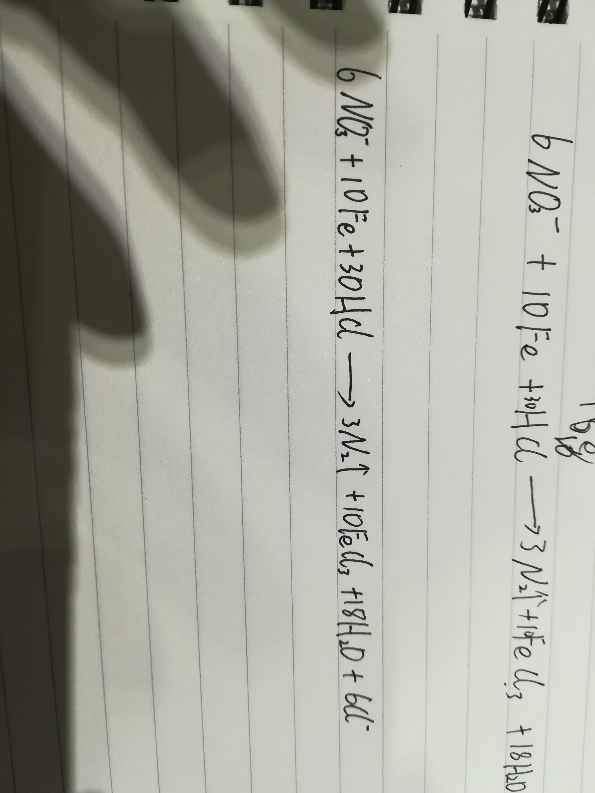 6NO₃⁻ + 10Fe + 30HCl → 3N₂↑ + 10FeCl₃ + 18H₂O
6NO₃⁻ + 10Fe + 30HCl → 3N₂↑ + 10FeCl₃ + 18H₂O + 6Cl⁻